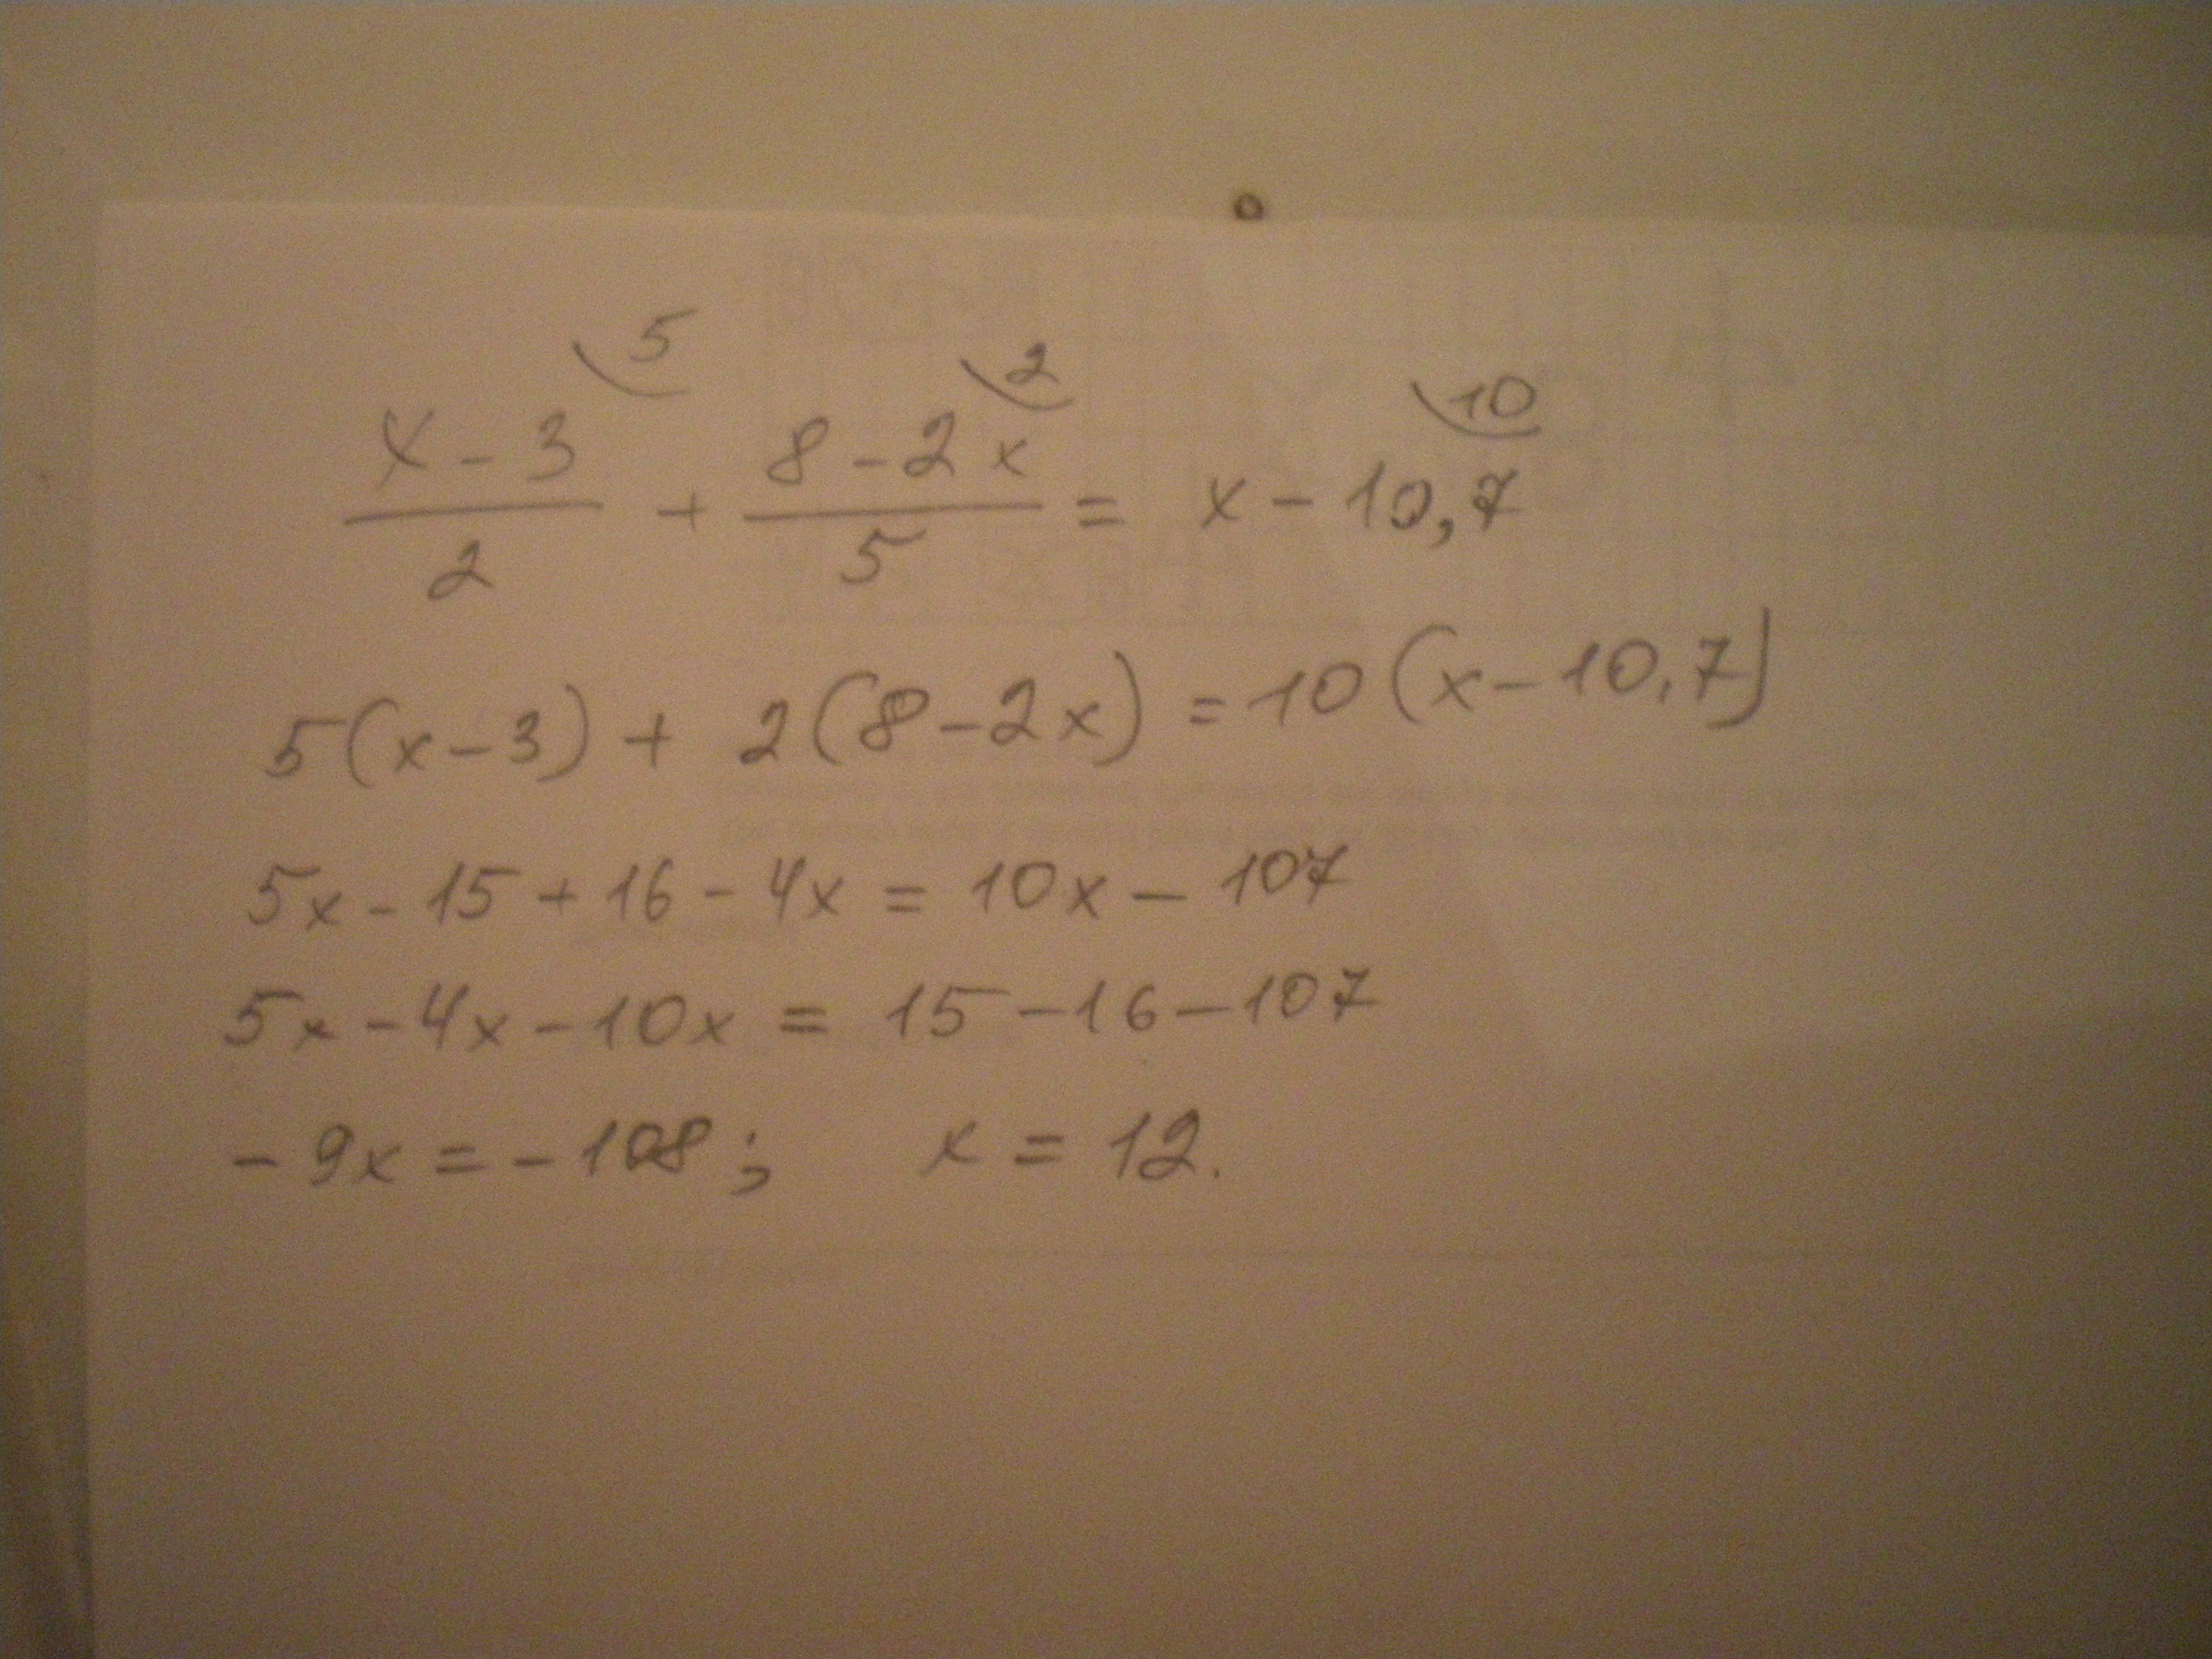 5 2 10
x - 3 / 2 + 8 - 2x / 5 = x - 10,7
5(x - 3) + 2(8 - 2x) = 10(x - 10,7)
5x - 15 + 16 - 4x = 10x - 107
5x - 4x - 10x = 15 - 16 - 107
- 9x = - 108; x = 12.